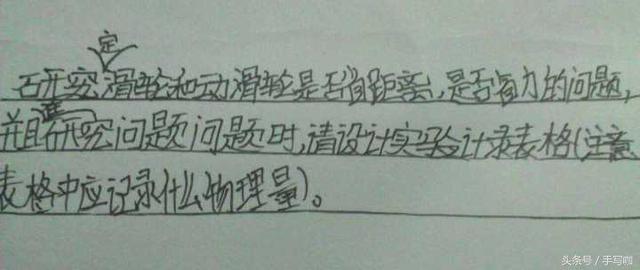 定
研究滑轮和动滑轮是否省距离,是否省力的问题,
并且研究问题问题时,请设计实验计录表格(注意
表格中应记录什么物理量)。
头条号/手写咖